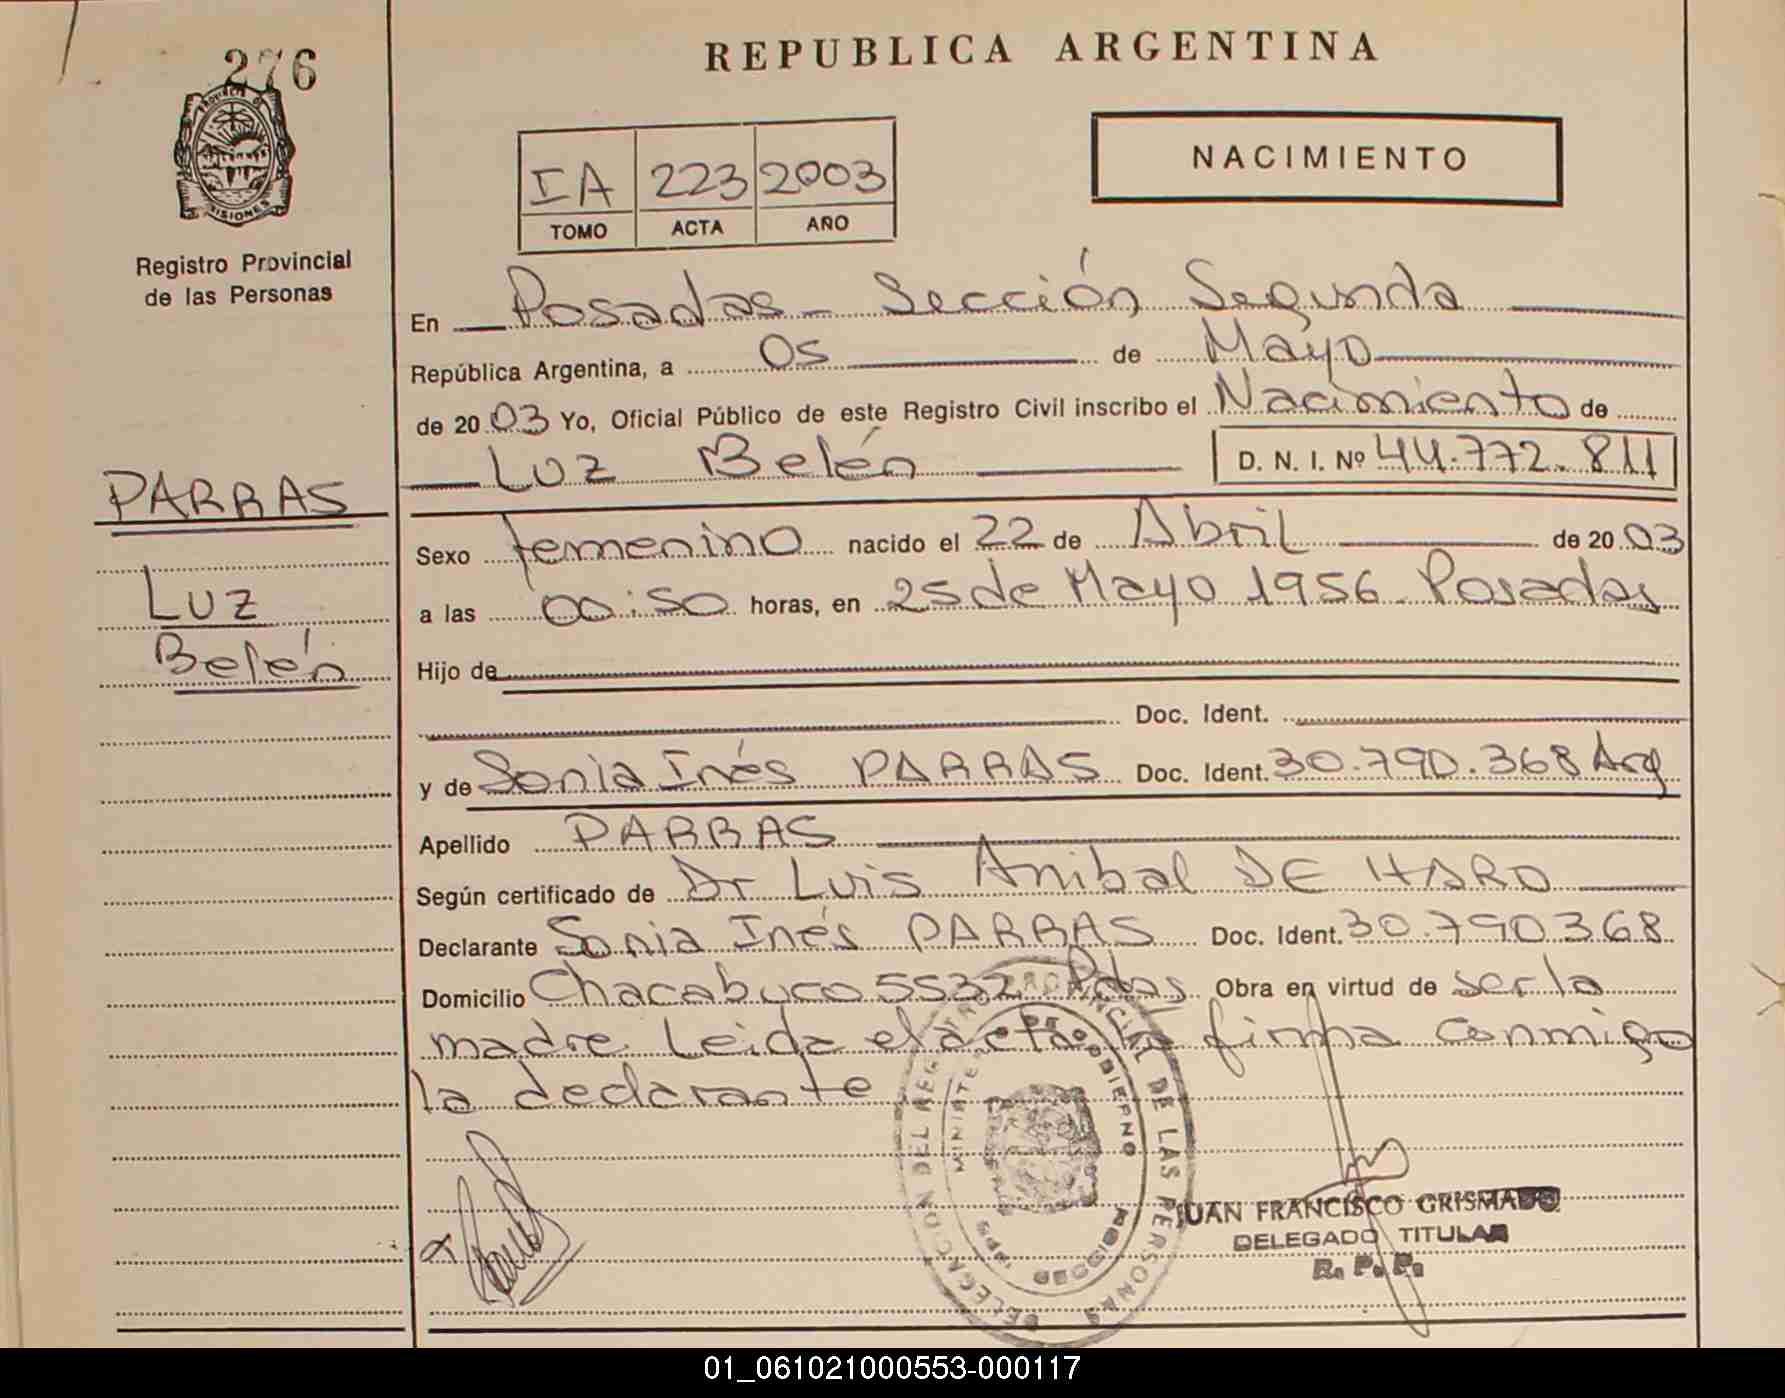 276
PROVINCIA DE
MISIONES
Registro Provincial
de las Personas
PARRAS
Luz
Belén
REPUBLICA ARGENTINA
NACIMIENTO
IA 223 2003
TOMO ACTA AÑO
En Posadas - Sección Segunda
República Argentina, a 05 de Mayo
de 2003 Yo, Oficial Público de este Registro Civil inscribo el Nacimiento de
Luz Belén D. N. I. Nº 44.772.811
Sexo femenino nacido el 22 de Abril de 2003
a las 00:50 horas, en 25 de Mayo 1956 - Posadas
Hijo de
Doc. Ident.
y de Sonia Inés PARRAS Doc. Ident. 30.790.368 Arg
Apellido PARRAS
Según certificado de Dr Luis Anibal DE HARO
Declarante Sonia Inés PARRAS Doc. Ident. 30.790368
Domicilio Chacabuco 5532 Pdas Obra en virtud de ser la
madre. Leida el acta la firma conmigo
la declarante
DELEGACION DEL REGISTRO PROVINCIAL DE LAS PERSONAS
DE GOBIERNO
JUAN FRANCISCO GRISMADO
DELEGADO TITULAR
R. P. P.
01_061021000553-000117